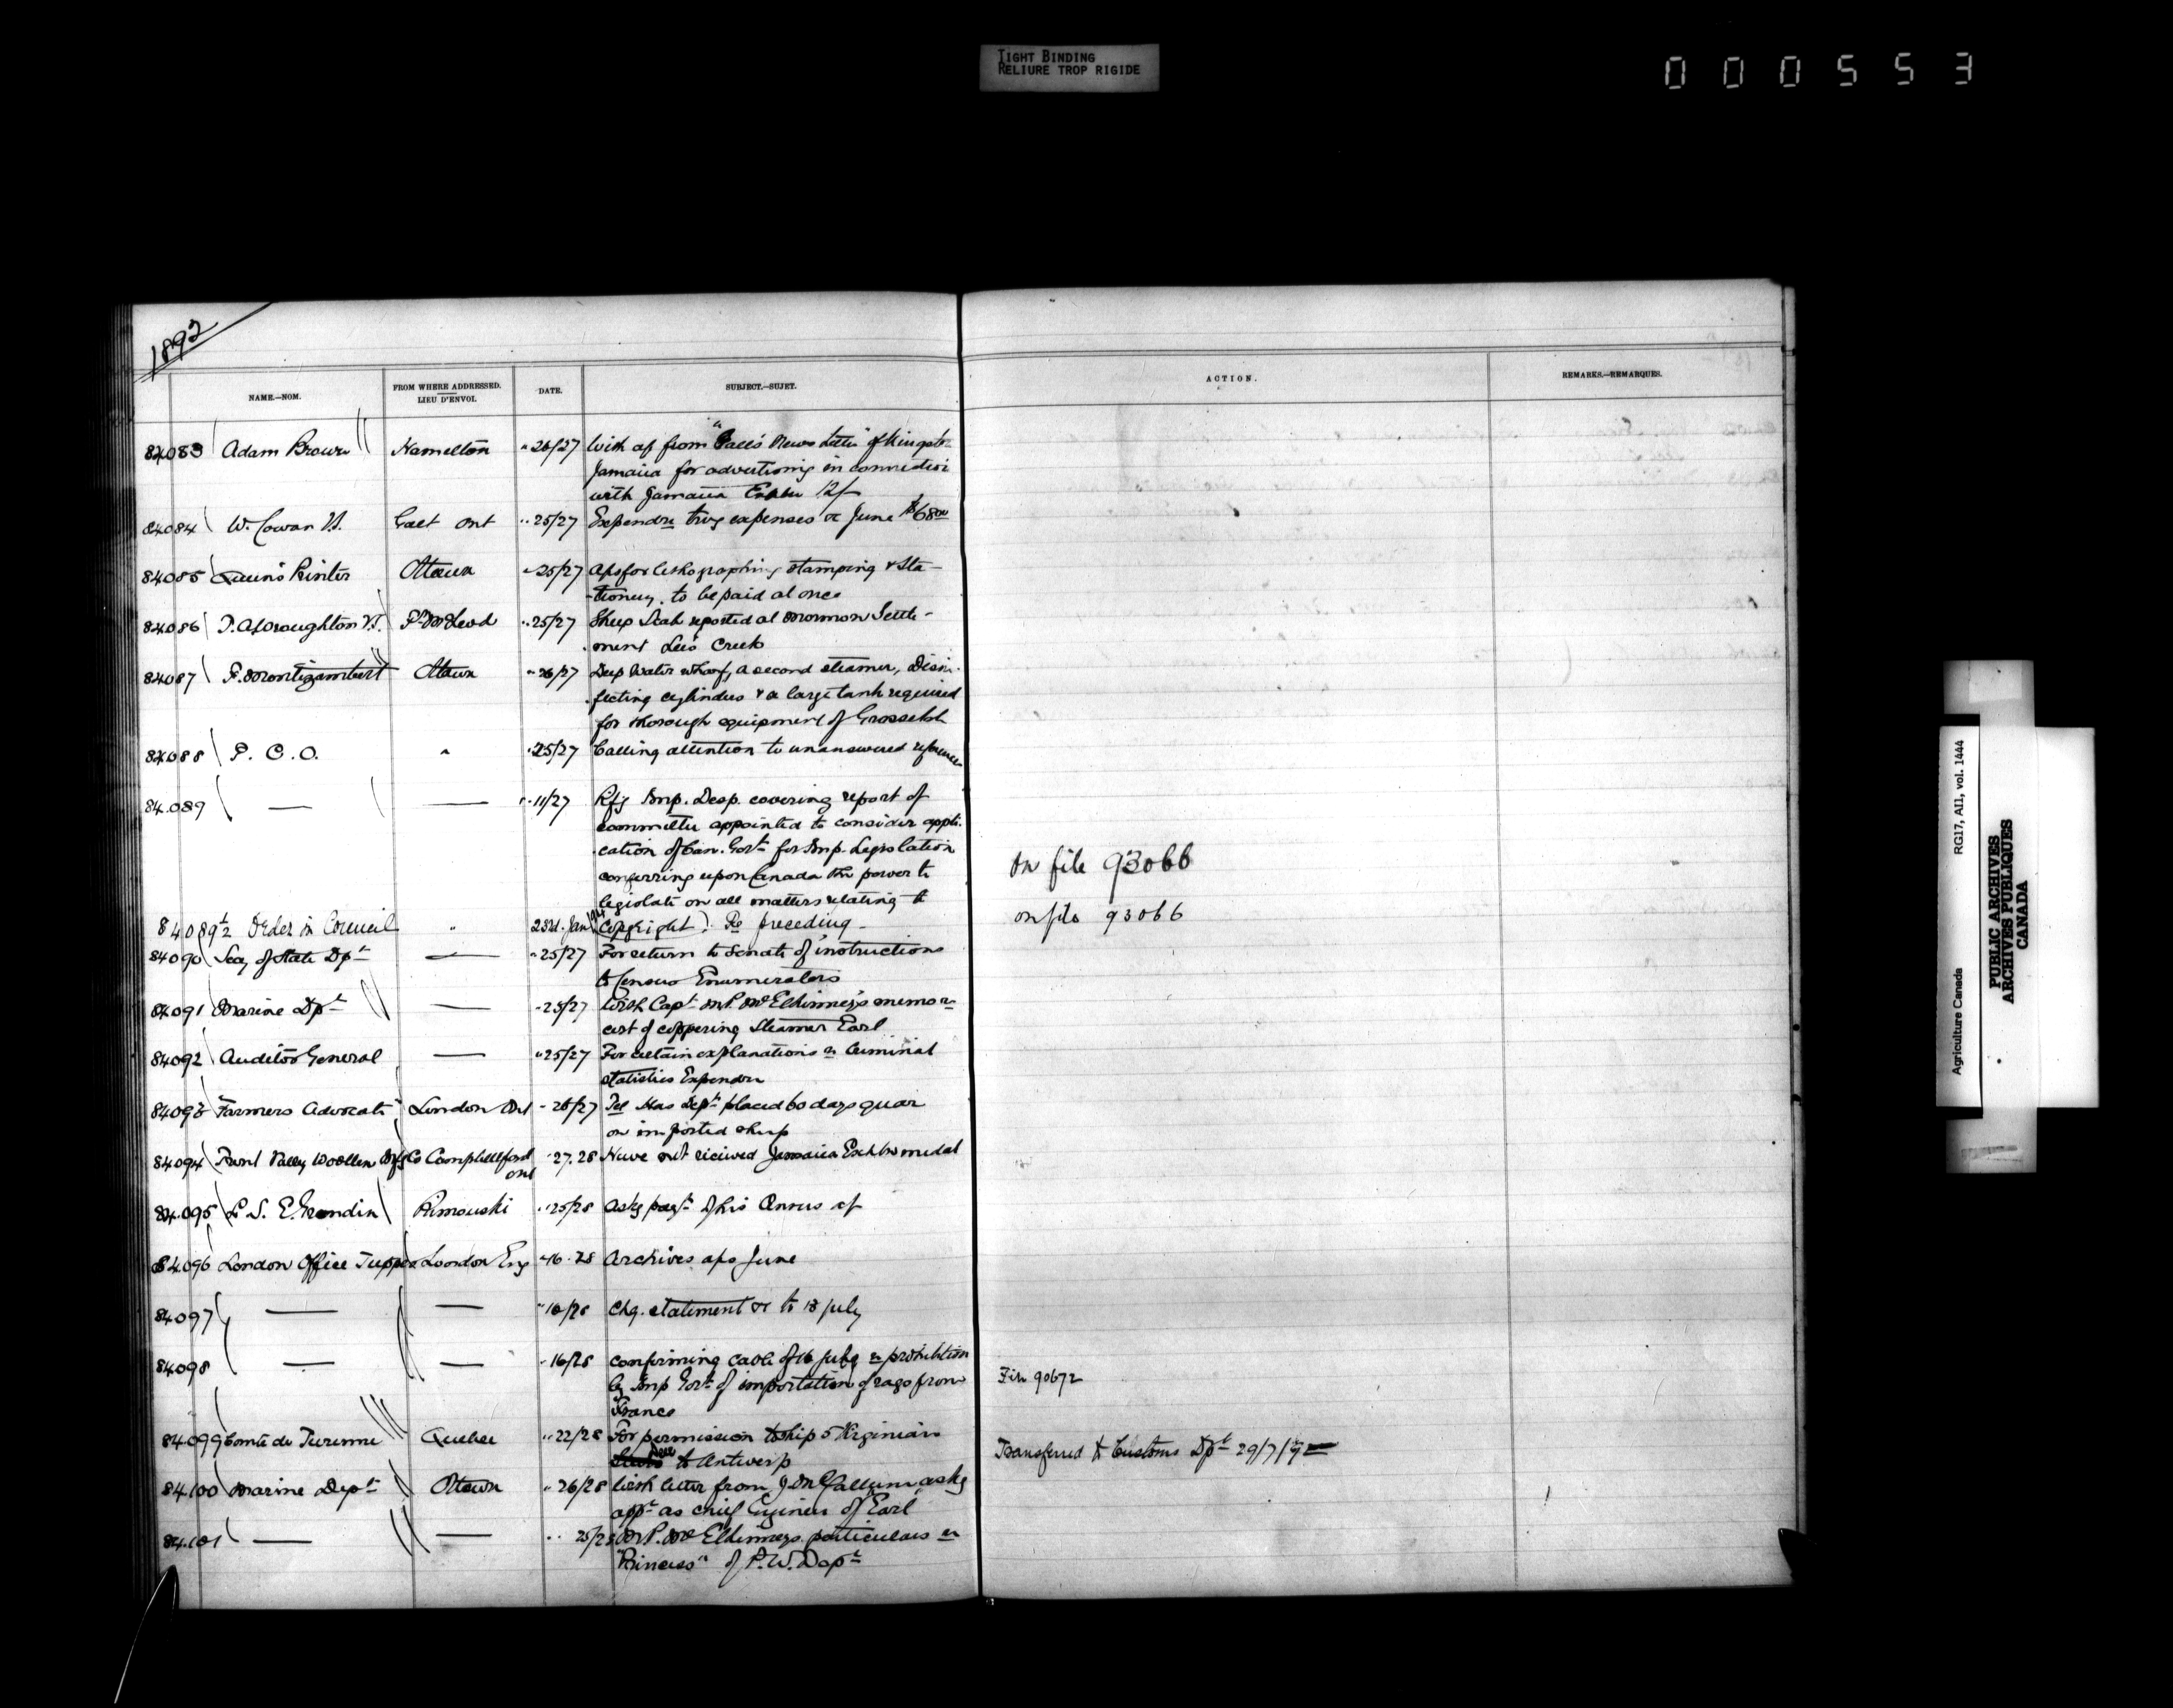 TIGHT BINDING
RELIURE TROP RIGIDE
000553
1892
NAME.—NOM.
FROM WHERE ADDRESSED.
LIEU D'ENVOI.
DATE.
SUBJECT.—SUJET.
ACTION.
REMARKS.—REMARQUES.
84083 Adam Brown Hamilton " 26/27 With a/c from "Gall's News Letter" of Kingston
Jamaica for advertising in connection
with Jamaica Exhbn 12/-
84084 W. Cowan V.S. Galt Ont " 25/27 Expendre trvg expenses &c June $68.00
84085 Queen's Printer Ottawa " 25/27 A/cs for lithographing stamping & Sta-
tionery. to be paid at once
84086 Wroughton V.S. Ft McLeod " 25/27 Sheep Scab reported at Mormon Settle-
ment Lee's Creek
84087 F. Montizambert Ottawa " 26/27 Deep Water Wharf, a second steamer, Disin-
fecting cylinders & a large tank required
for thorough equipment of Grosse Isle
84088 P. C. O. " " 25/27 Calling attention to unanswered reference
84.089 — — " 11/27 Rfg Imp. Desp. covering report of
committee appointed to consider appli-
cation of Can. Govt for Imp. Legislation
conferring upon Canada the power to
legislate on all matters relating to
On file 93066
84089½ Order in Council " 23rd. Jan Copyright). Re preceding -
on file 93066
84090 Secy of State Dpt — " 25/27 For return to Senate of instructions
to Census Enumerators
84091 Marine Dpt — " 25/27 With Capt McElhinney's memo re
cost of coppering Steamer Earl
84092 Auditor General — " 25/27 For certain explanations re Criminal
statistics Expendre
84093 "Farmers Advocate" London Ont " 26/27 Tel Has Dept placed 60 days quar
on imported sheep
84094 Trent Valley Woollen Mfg Co Campbellford
Ont " 27.28 Have not received Jamaica Exhbn medal
84.095 L. S. E. Grondin Rimouski " 25/28 Asks payt of his Census a/c
84096 London Office Tupper London Eng " 16.28 Archives a/cs June
84097 — — " 18/28 Chq. statement &c to 18 July
84098 — — " 16/28 confirming cable of 16 July re prohibition
by Imp Govt of importation of rags from
France
File 90672
84.099 Comte de Turenne Quebec " 22/28 For permission to ship 5 Virginian
Deer to Antwerp
Transferred to Customs Dpt 29/7/92
84100 Marine Dept Ottawa " 26/28 With letter from J. McCallum askg
appt as chief Engineer of "Earl"
84.101 — — " 25/28 McElhinneys particulars re
"Princess" of P.W. Dept
Agriculture Canada
RG17, AII, vol. 1444
PUBLIC ARCHIVES
ARCHIVES PUBLIQUES
CANADA